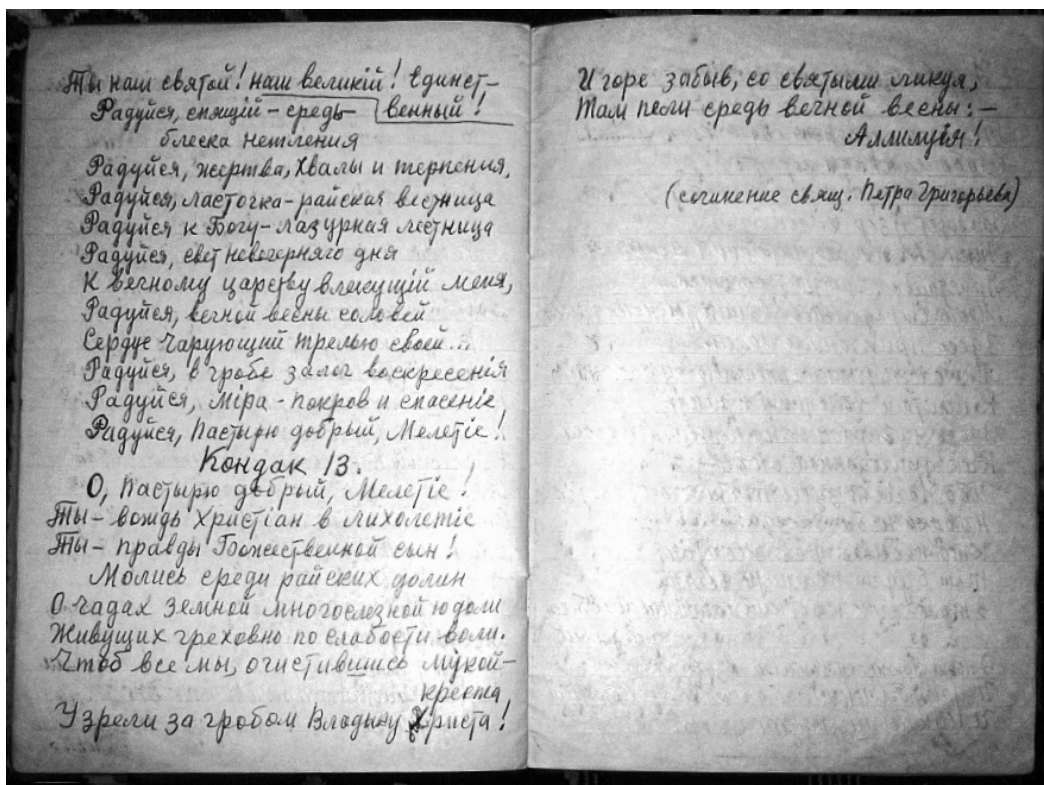 Ты наш святой! наш великій! Единст-
венный!
Радуйся, спящій - средь
блеска нетления
Радуйся, жертва, Хвалы и терпения,
Радуйся, ласточка - райская вестница
Радуйся к Богу - лазурная лестница
Радуйся, свет невечерняго дня
К вечному царству влекущій меня,
Радуйся, вечной весны соловей
Сердце чарующий трелью своей...
Радуйся, в гробе залог воскресенія
Радуйся, міра - покров и спасеніе
Радуйся, Пастырю добрый, Мелетіе!
Кондак 13.
О, Пастырю добрый, Мелетіе!
Ты - вождь Христіан в лихолетіе
Ты - правды Божественной сын!
Молись среди райских долин
О чадах земной многослезной юдоли
Живущих греховно по слабости воли.
Чтоб все мы, очистившись мукой -
креста
Узрели за гробом Владыку Христа!
И горе забыв, со святыми ликуя,
Там пели средь вечной весны: -
Аллилуія!
(сочинение свящ. Петра Григорьева)